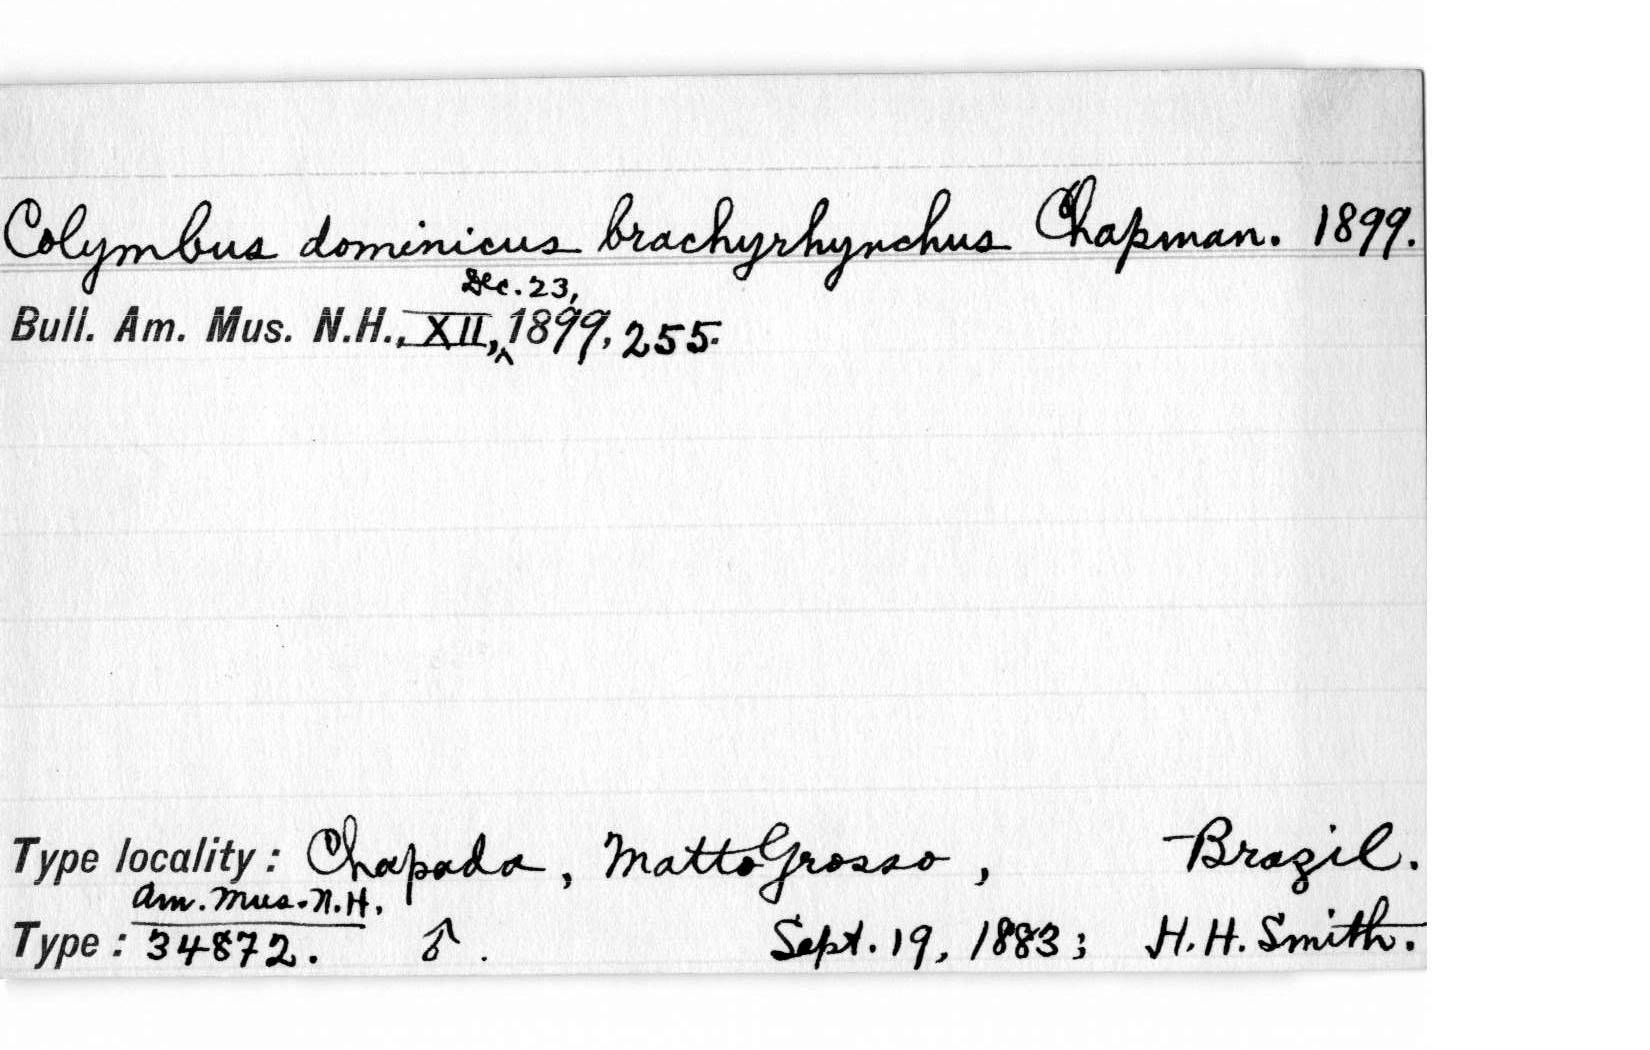 Colymbus dominicus brachyrhynchus Chapman. 1899.
Dec. 23,
Bull. Am. Mus. N.H., XII, ^ 1899, 255.
Type locality: Chapada, Matto Grosso, Brazil.
Am. Mus. N.H.
Type: 34872. ♂. Sept. 19, 1883; H. H. Smith.